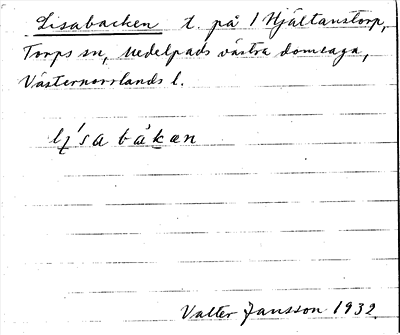 Lisabacken t. på 1 Hjältanstorp,
Torps sn, Medelpads västra domsaga,
Västernorrlands l.
lı̣́sa bàkæn
Valter Jansson 1932.